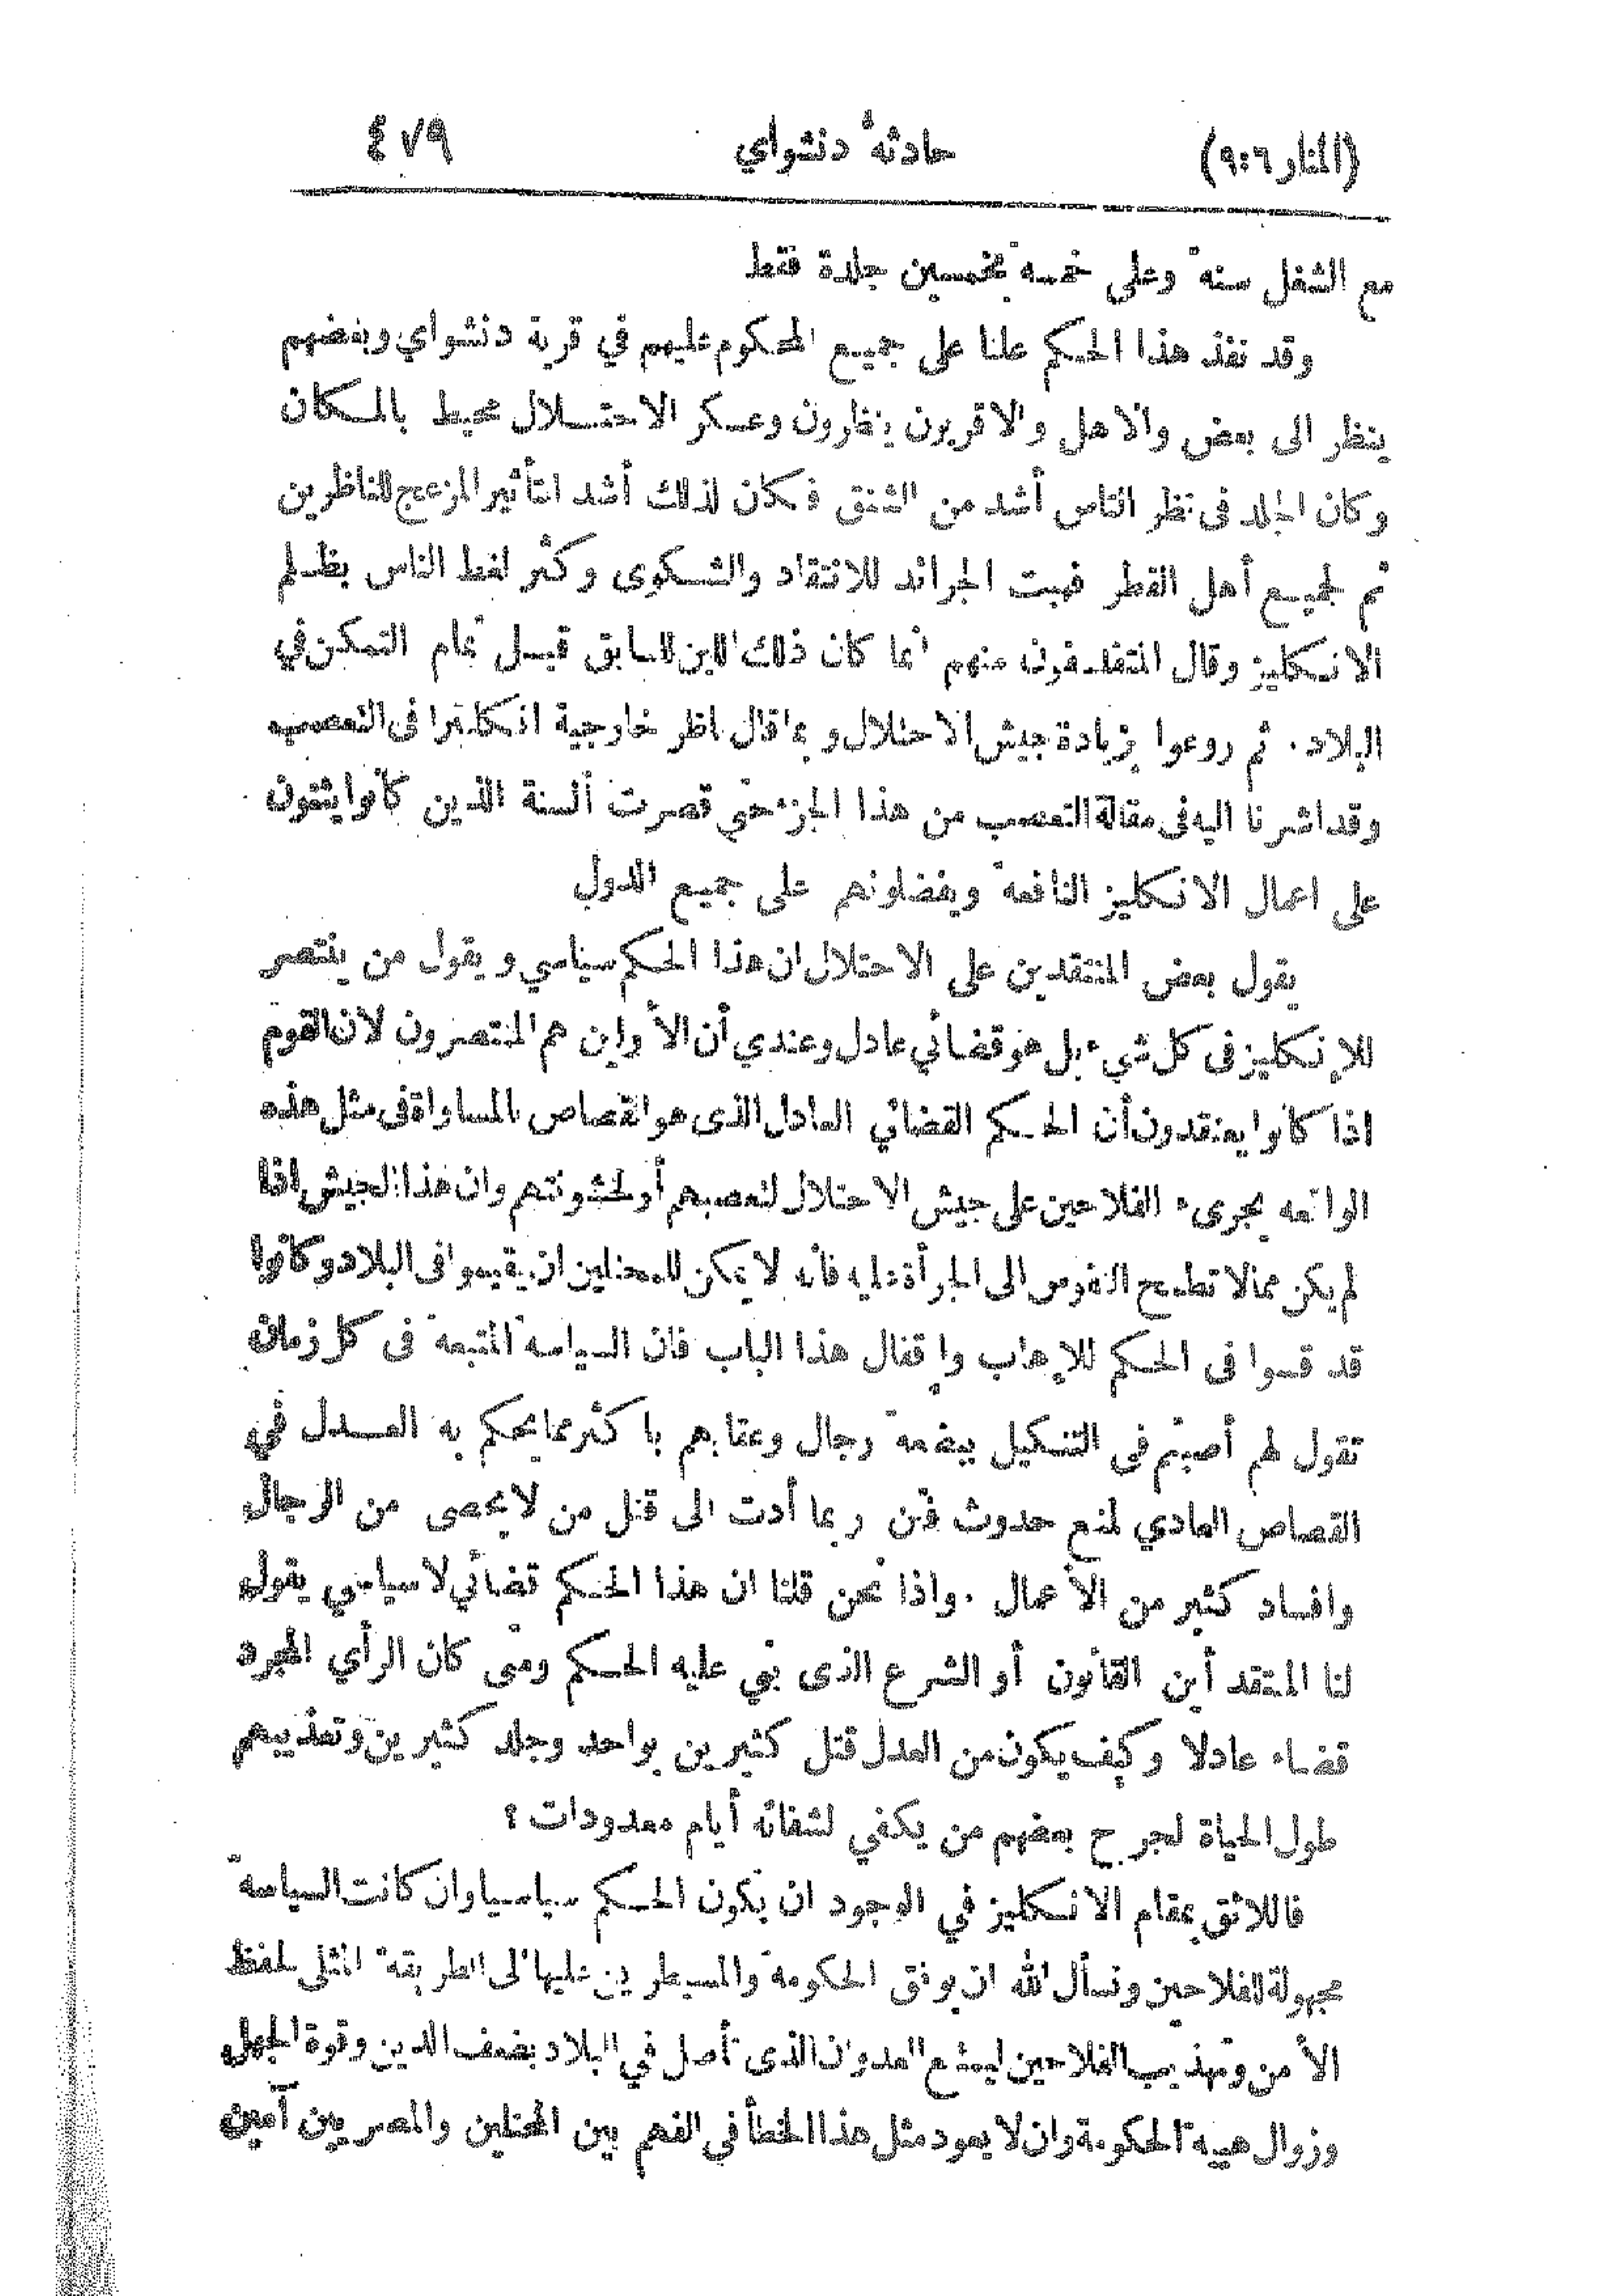 (المنار ٩:٦) حادثة دنشواي ٤٧٩
مع الشغل سنة وعلى خمسة بخمسين جلدة فقط
وقد نفذ هذا الحكم علنا على جميع المحكوم عليهم في قرية دنشواي وبعضهم
ينظر الى بعض والاهل والاقربون ينظرون وعسكر الاحتلال محيط بالمكان
وكان الجلد فى نظر الناس أشد من الشنق فكان لذلك أشد التأثير المزعج للناظرين
ثم لجميع أهل القطر فهبت الجرائد للانتقاد والشكوى وكثر لغط الناس بظلم
الانكليز وقال المنتقدون منهم انما كان ذلك اللين السابق قبل تمام التمكن في
البلاد . ثم روعوا بزيادة جيش الاحتلال وبما قال ناظر خارجية انكلترا فى التعصب
وقد اشرنا اليه فى مقالة التعصب من هذا الجزء حتى قصرت ألسنة الذين كانوا يثنون
على اعمال الانكليز النافعة ويفضلونهم على جميع الدول
يقول بعض المنتقدين على الاحتلال ان هذا الحكم سياسي ويقول من ينتصر
للإنكليز فى كل شيء بل هو قضائي عادل وعندي أن الأولين هم المنتصرون لان القوم
اذا كانوا يعتقدون أن الحكم القضائي العادل الذى هو القصاص بالمساواة فى مثل هذه
الواقعة يجرىء الفلاحين على جيش الاحتلال لتعصبهم أو لخشونتهم وان هذا الجيش اذا
لم يكن ممالا تطمح النفوس الى الجرأة عليه فانه لا يمكن للمحتلين ان يقيموا فى البلاد وكانوا
قد قسوا فى الحكم للإرهاب وإقفال هذا الباب فان السياسة المتبعة فى كل زمان
تقول لهم أصبتم فى التنكيل ببضعة رجال وعقابهم با كثر مما يحكم به العدل في
القصاص العادي لمنع حدوث فتن ربما أدت الى قتل من لا يحصى من الرجال
وافساد كثير من الأعمال . واذا نحن قلنا ان هذا الحكم قضائي لا سياسي يقول
لنا المنتقد أين القانون أو الشرع الذى بني عليه الحكم ومتى كان الرأي المجرد
قضاء عادلا وكيف يكون من العدل قتل كثيرين بواحد وجلد كثيرين وتعذيبهم
طول الحياة لجرح بعضهم من يكفي لشفائه أيام معدودات ؟
فاللائق بمقام الانكليز في الوجود ان يكون الحكم سياسيا وان كانت السياسة
مجهولة للفلاحين ونسأل الله ان يوفق الحكومة والمسيطرين عليها الى الطريقة المثلى لحفظ
الأمن وتهذيب الفلاحين ليمتنع العدوان الذى تأصل في البلاد بضعف الدين وقوة الجهل
وزوال هيبة الحكومة وان لا يعود مثل هذا الخطأ في الفهم بين المحتلين والمصريين آمين